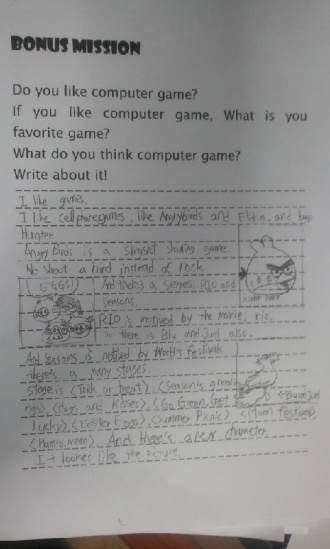 BONUS MISSION
Do you like computer game?
If you like computer game, What is you
favorite game?
What do you think computer game?
Write about it!
I like games.
I like cellphonegames, like Angrybirds and and
Hunter
Angry Birds is a slingshot shooting game.
We shoot a bird instead of rock.
(EGGS!) And there's a series RIO and
seasons.
RIO is motived by the movie, rio.
there is Blu and Juel also.
And seasons is motived by World's festival
there's a many stages.
stage is (Trick or treat), (Season's greeti
ngs) (Hogs and kisses), (Go Green, Get
Lucky), (Easter Eggs), (Summer Picnic) (Moon festival),
(Ham'o'ween) And there's a new character.
It lookes like the picture.